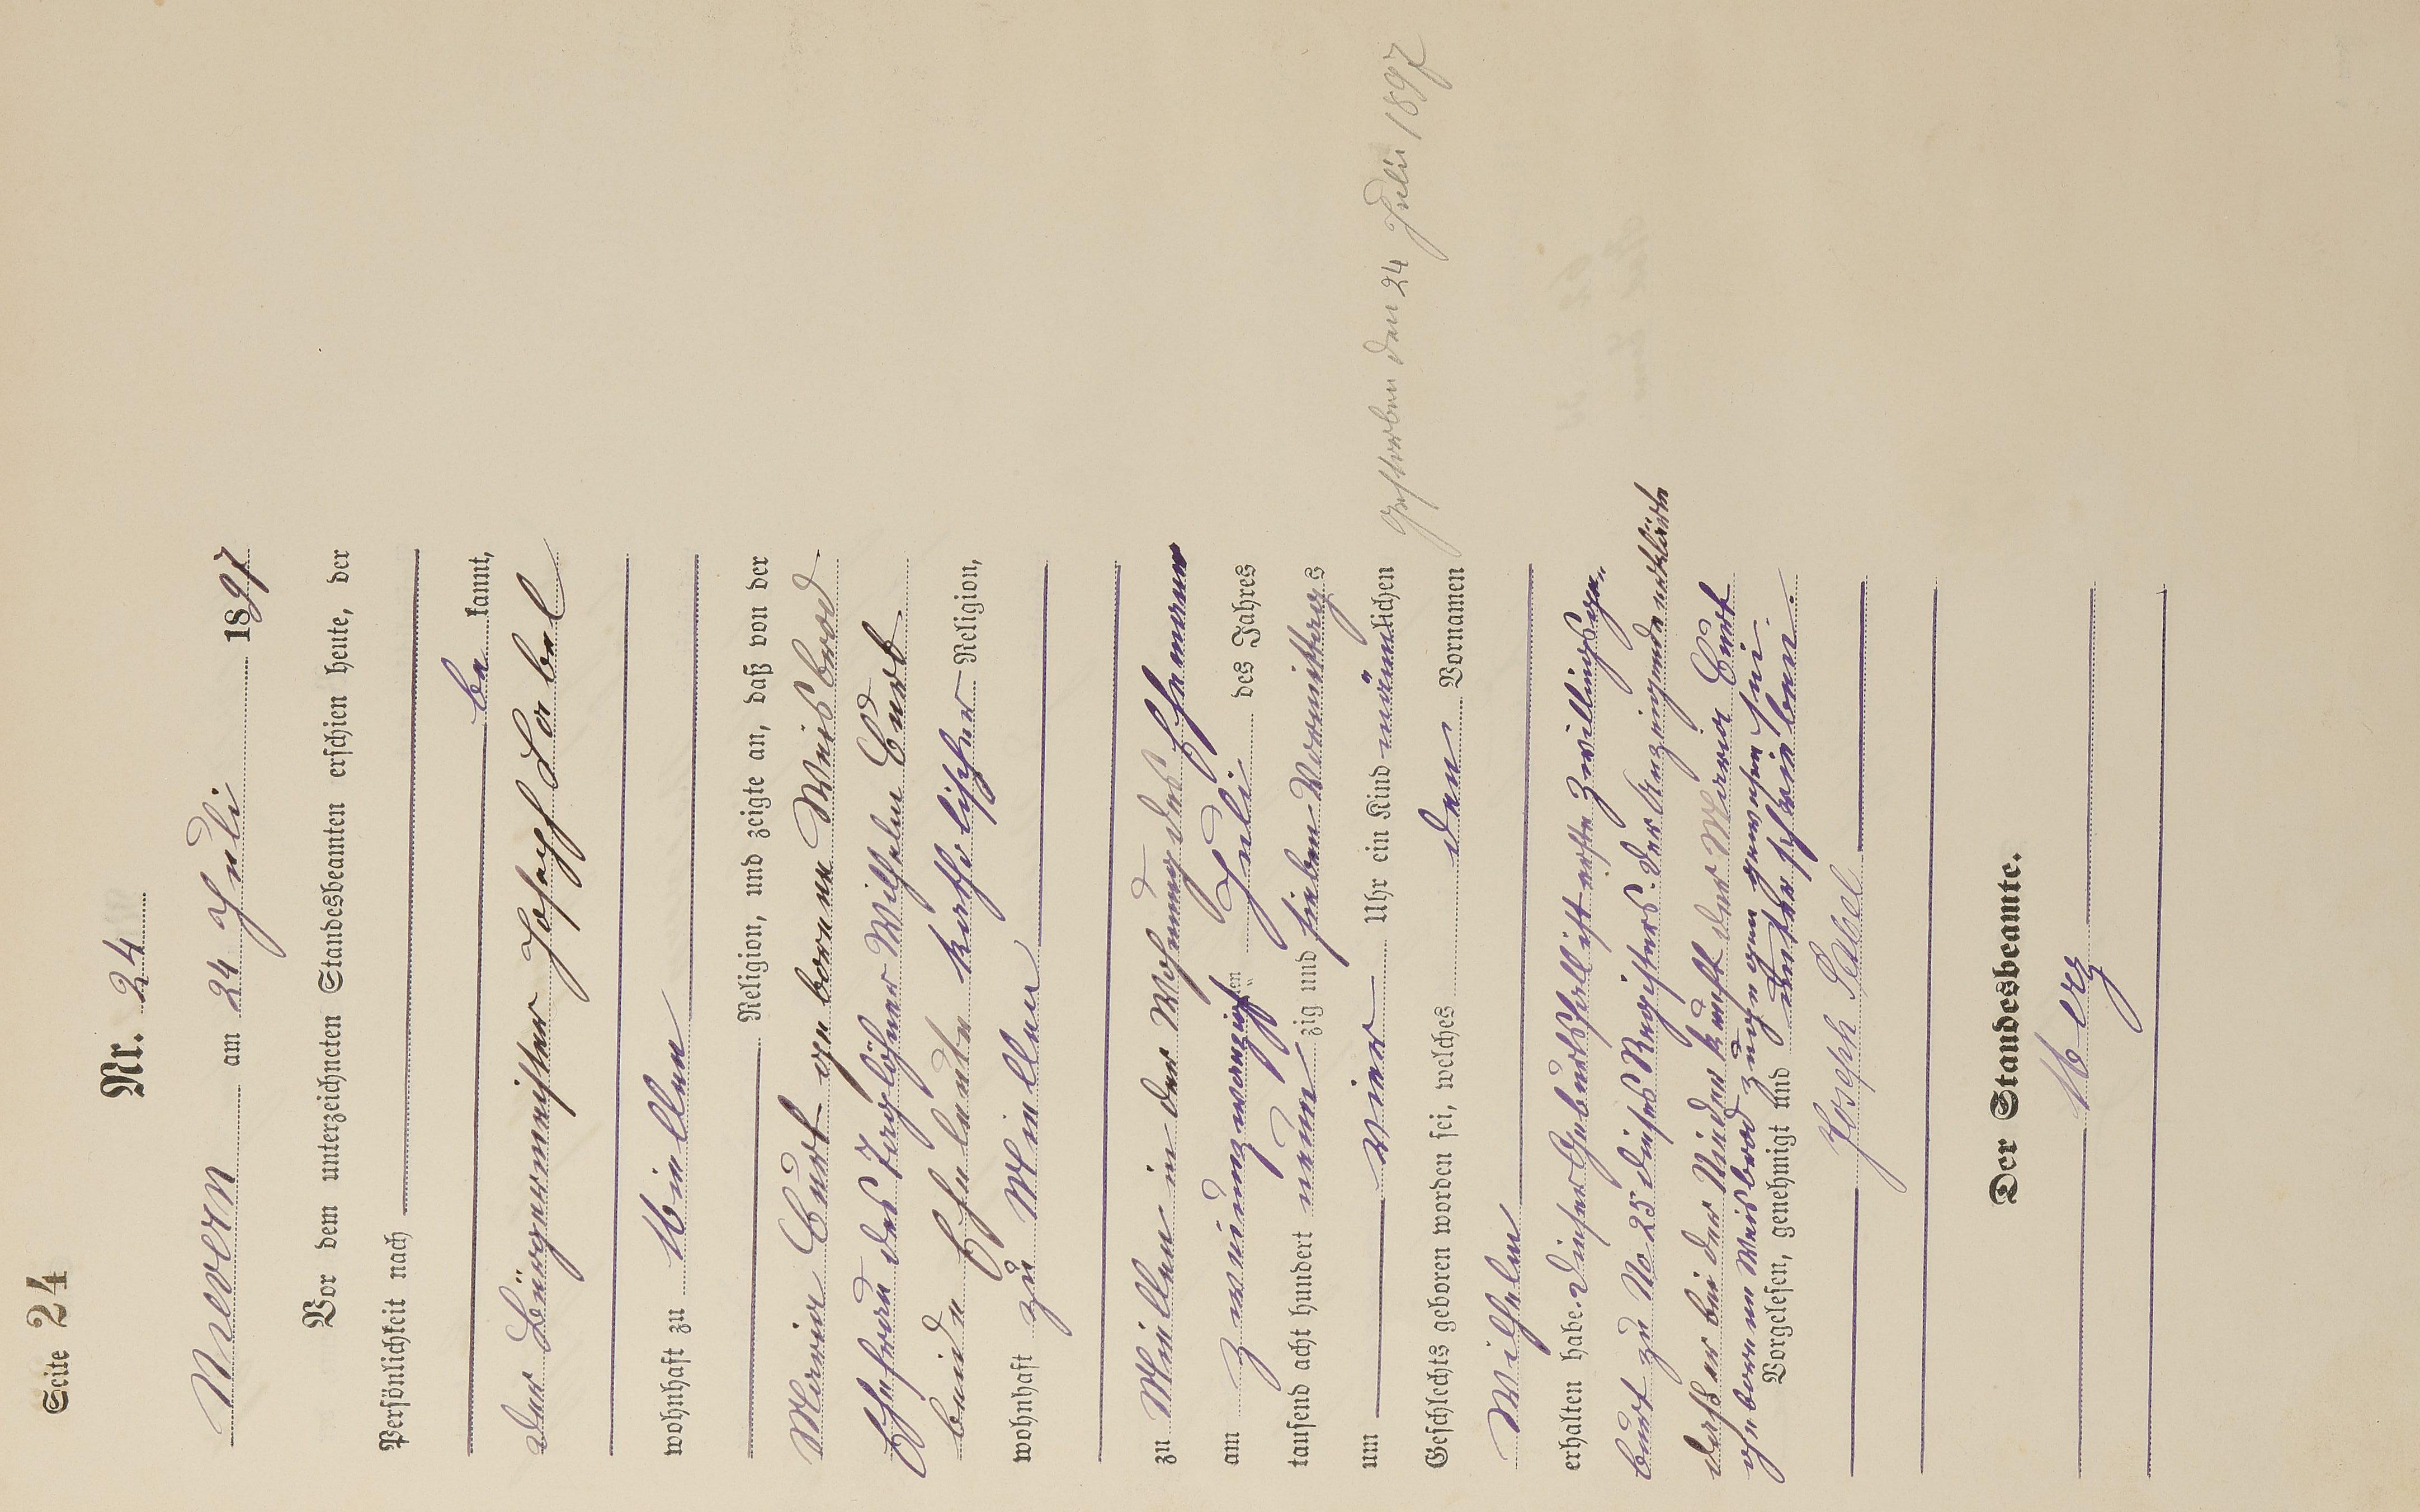 Seite 24
Nr. 24
Nievern am 24 Juli 1897
Vor dem unterzeichneten Standesbeamten erschien heute, der
Persönlichkeit nach
be kannt,
der Bürgermeister Joseph Label
wohnhaft zu Miellen
Religion, und zeigte an, daß von der
Maria Curt geborene Weisbrod
Ehefrau des Taglöhner Wilhelm Curt
beide Eheleute katholischer Religion,
wohnhaft zu Miellen
zu Miellen in der Wohnung des Ehemann
am zweiundzwanzigsten Juli des Jahres
tausend acht hundert neun zig und sieben Vormittags
um vier Uhr ein Kind männlichen
Geschlechts geboren worden sei, welches den Vornamen
Wilhelm
erhalten habe. Dieser Geburtsfall ist erste Zwillingsge-
burt zu No 25 dieses Registers. Der Anzeigende erklärte
daß er bei der Niederkunft der Maria Curt
geborenen Weisbrod zugegen gewesen sei.
Vorgelesen, genehmigt und unterschrieben.
Joseph Label
Der Standesbeamte.
Gestorben den 24 Juli 1897